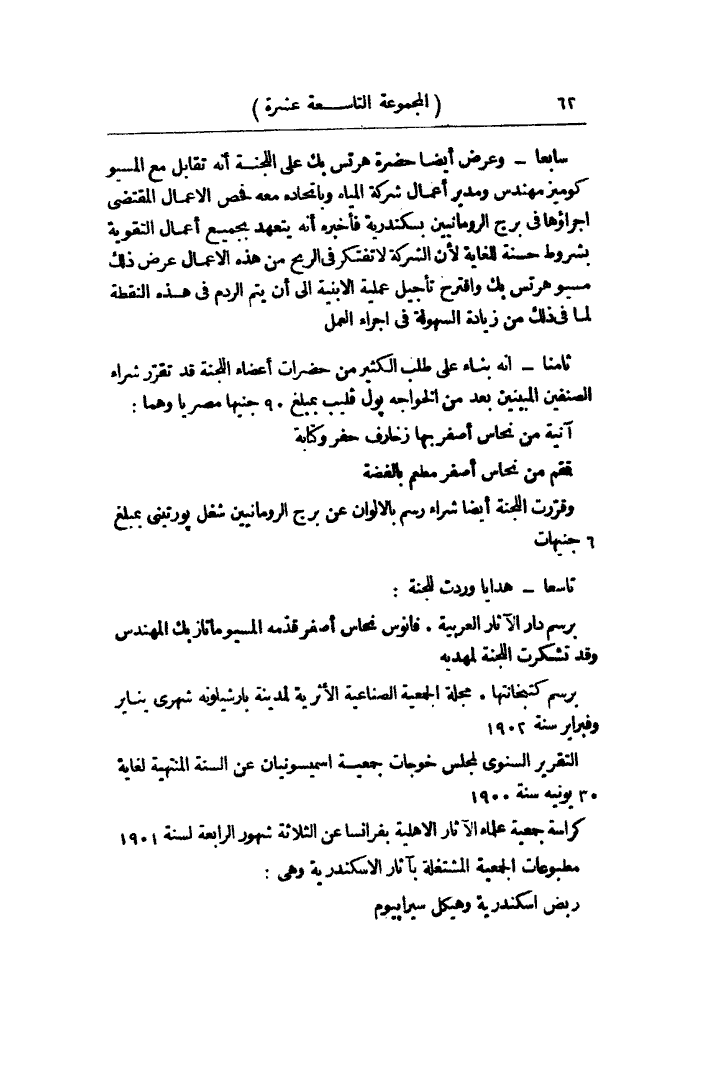 ٦٢ ( المجموعة التاسعة عشرة )
سابعا ـ وعرض أيضا حضرة هرتس بك على اللجنة أنه تقابل مع المسيو
كوميز مهندس ومدير أعمال شركة المياه وباتحاده معه فحص الاعمال المقتضى
اجراؤها فى برج الرومانيين بسكندرية فأخبره أنه يتعهد بجميع أعمال التقوية
بشروط حسنة للغاية لأن الشركة لا تفتكر فى الربح من هذه الاعمال عرض ذلك
مسيو هرتس بك واقترح تأجيل عملية الابنية الى أن يتم الردم فى هذه النقطة
لما فى ذلك من زيادة السهولة فى اجراء العمل
ثامنا ـ انه بناء على طلب الكثير من حضرات أعضاء اللجنة قد تقرّر شراء
الصنفين المبينين بعد من الخواجه پول فليب بمبلغ ٩٠ جنيها مصريا وهما :
آنية من نحاس أصفر بها زخارف حفر وكتابة
قمقم من نحاس أصفر مطعم بالفضة
وقرّرت اللجنة أيضا شراء رسم بالالوان عن برج الرومانيين شغل پورتينى بمبلغ
٦ جنيهات
تاسعا ـ هدايا وردت للجنة :
برسم دار الآثار العربية . فانوس نحاس أصفر قدّمه المسيو ماتاز بك المهندس
وقد تشكرت اللجنة لمهديه
برسم كتبخانتها . مجلة الجمعية الصناعية الأثرية لمدينة بارشيلونه شهرى يناير
وفبراير سنة ١٩٠٢
التقرير السنوى لمجلس خوجات جمعية اسميسونيان عن السنة المنتهية لغاية
٣٠ يونيه سنة ١٩٠٠
كراسة جمعية علماء الآثار الاهلية بفرانسا عن الثلاثة شهور الرابعة لسنة ١٩٠١
مطبوعات الجمعية المشتغلة بآثار الاسكندرية وهى :
ربض اسكندرية وهيكل سيراپيوم